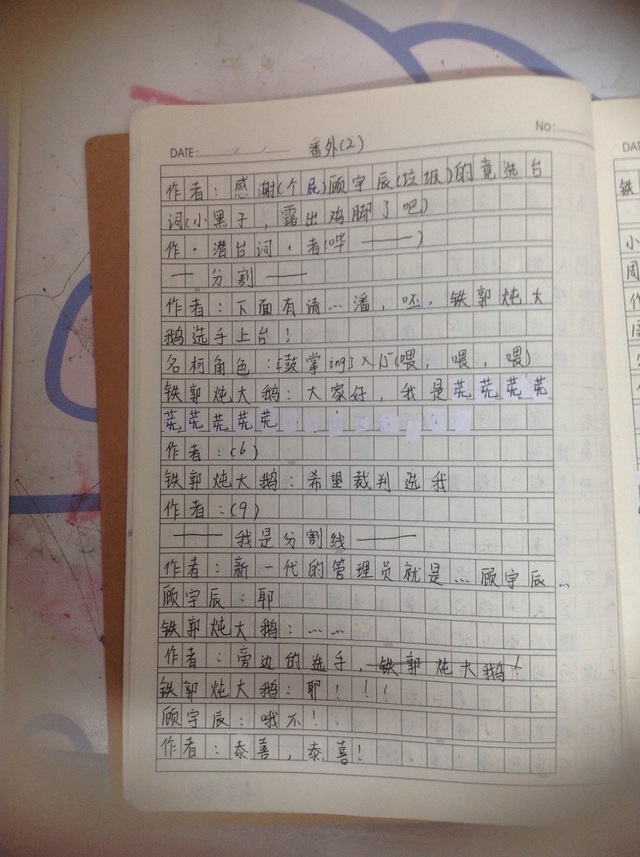 No:
DATE:
番外(2)
作者：感谢(个屁)顾宇辰(垃圾)的竟选台
词(小黑子，露出鸡脚了吧)
作·潜台词·者(哔——)
——分割——
作者：下面有请…潘，呸，铁郭炖大
鹅选手上台！
名柯角色：[鼓掌ing]×15(喂，喂，喂)
铁郭炖大鹅：大家好，我是芜芜芜芜
芜芜芜芜芜
作者：(6)
铁郭炖大鹅：希望裁判选我
作者：(9)
——我是分割线——
作者：新一代的管理员就是…顾宇辰…
顾宇辰：耶
铁郭炖大鹅：……
作者：旁边的选手，铁郭炖大鹅！
铁郭炖大鹅：耶！！！
顾宇辰：哦不！
作者：泰喜，泰喜！
DAT
铁
小
周
作